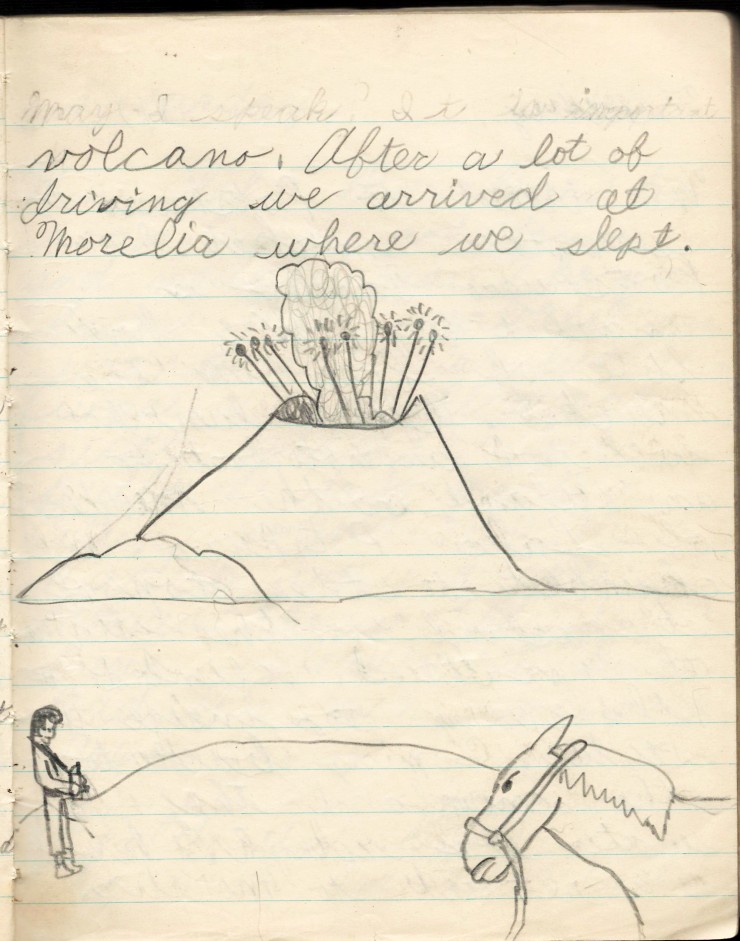 May I speak? It is important
volcano. After a lot of
driving we arrived at
Morelia where we slept.